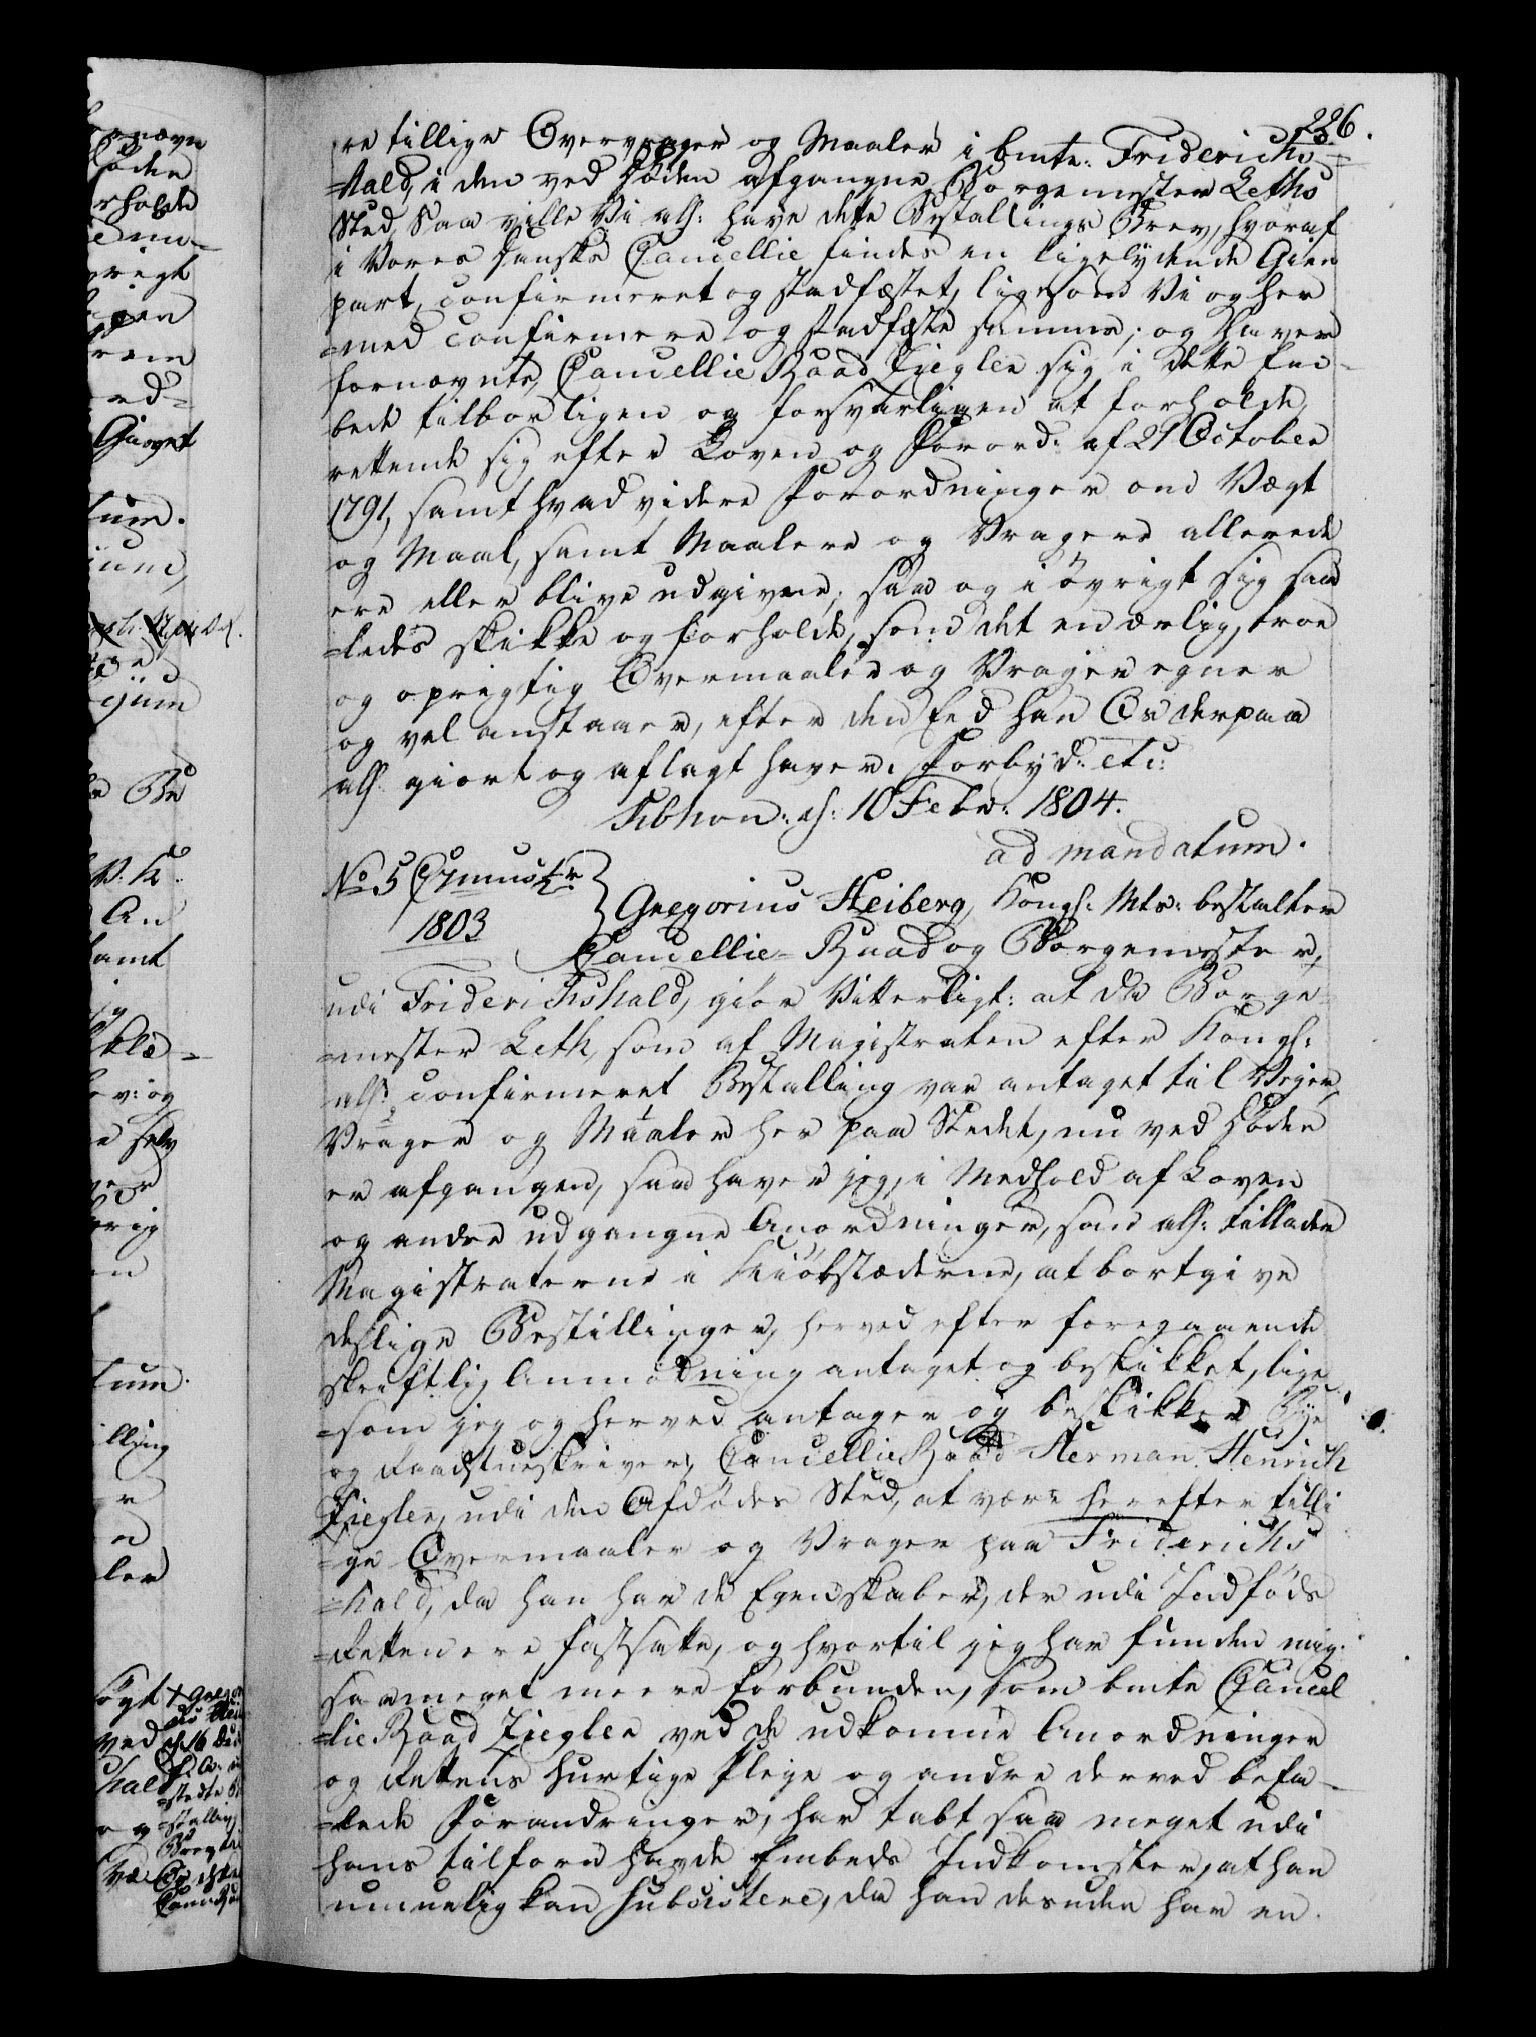 226.
re tillige Overvrager og Maaler i bmte. Friderichs=
=hald, i den ved Døden afgangne Borgemester Leths
Sted, Saa ville Vi alh: have dette Bestallings Brev, hvoraf
i Vores danske Cancellie findes en ligelydende Gien
part, confirmeret og stadfæstet, ligesom Vi og her
=med confirmere og stadfæste samme; og haver
fornævnte Cancellie Raad Ziegler sig i dette Em=
bede tilbørligen og forsvarligen at forholde,
rettende sig efter Loven og Forord: af 21 October
1791, samt hvad videre Forordninger om Vægt
og Maal, samt Maalere og Vragere allerede
ere eller blive udgivne; saa og i øvrigt sig saa
=ledes skikke og forholde, som det en ærlig, troe
og oprigtig Overmaaler og Vrager egner
og vel anstaaer, efter den Eed han Os derpaa
alh: giort og aflagt haver. Forbyd: etc:
Kbhvn: d: 10 Febr: 1804.
ad mandatum.
No 5
1803
Gregorius Heiberg, Kongl: Mts: bestalter
Cancellie-Raad og Borgemester,
udi Friderichshald, giør Vitterligt: at da Borge=
=mester Leth, som af Magistraten efter Kongl:
alh: confirmeret Bestalling var antaget til Vejer,
Vrager og Maaler her paa Stedet, nu ved Døden
er afgangen, saa haver jeg, i Medhold af Loven
og andre udgangne Anordninger, som alh: tillader
Magistraterne i Kiøbstæderne, at bortgive
deslige Bestillinger, herved efter foregaaende
skriftlig Anmodning antaget og beskikket, lige
=som jeg og herved antager og beskikker Bye
og Raadstueskriver, Cancellie Raad Herman Henrich
Ziegler, udi den Afdødes Sted, at være herefter tilli
=ge Overmaaler og Vrager paa Friderichs
=hald, da han har de Egenskaber, der udi Indføds
=Retten ere fastsatte, og hvortil jeg har funden mig
saameget meere forbunden, som bmte Cancel
=lie Raad Ziegler ved de udkomne Anordninger
og Rettens hurtige Pleje og andre derved befa=
=lede Forandringer, har tabt saa meget udi
hans tilforn havde Embeds Indkomster, at han
umuelig kan subsistere, da han desuden har en